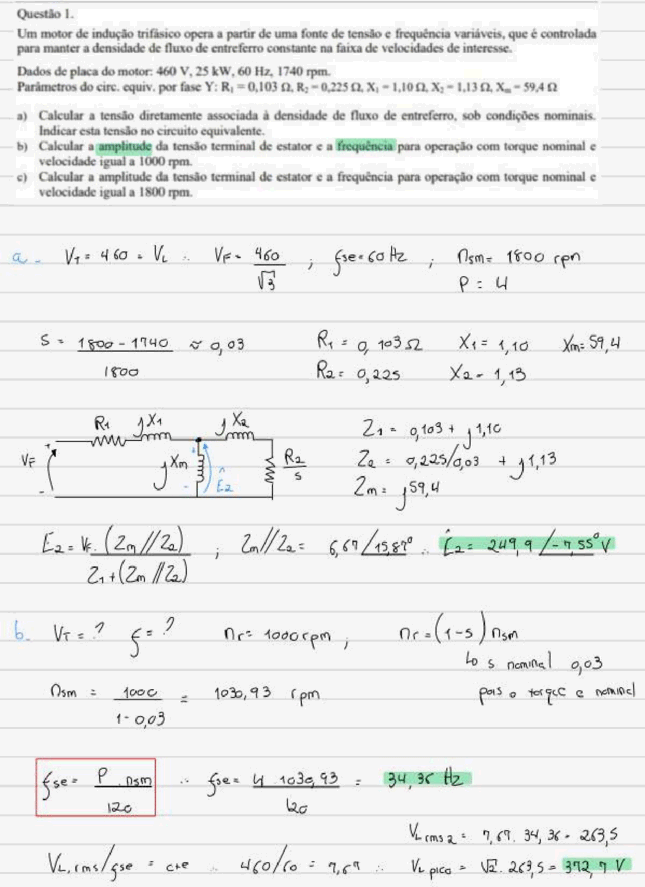 Questão 1.
Um motor de indução trifásico opera a partir de uma fonte de tensão e frequência variáveis, que é controlada
para manter a densidade de fluxo de entreferro constante na faixa de velocidades de interesse.
Dados de placa do motor: 460 V, 25 kW, 60 Hz, 1740 rpm.
Parâmetros do circ. equiv. por fase Y: R₁ = 0,103 Ω, R₂ = 0,225 Ω, X₁ = 1,10 Ω, X₂ = 1,13 Ω, Xₘ = 59,4 Ω
a) Calcular a tensão diretamente associada à densidade de fluxo de entreferro, sob condições nominais.
Indicar esta tensão no circuito equivalente.
b) Calcular a amplitude da tensão terminal de estator e a frequência para operação com torque nominal e
velocidade igual a 1000 rpm.
c) Calcular a amplitude da tensão terminal de estator e a frequência para operação com torque nominal e
velocidade igual a 1800 rpm.
a - V_T = 460 = V_L ∴ V_F = 460/√3 ; fse = 60 Hz ; nsm = 1800 rpm
P = 4
s = (1800 - 1740)/1800 ≈ 0,03 R₁ = 0,103 Ω X₁ = 1,10 Xm = 59,4
R₂ = 0,225 X₂ = 1,13
R₁ jX₁ jX₂
V_F + - jXm + - E₂ R₂/s
Z₁ = 0,103 + j1,10
Z₂ = 0,225/0,03 + j1,13
Zm = j59,4
E₂ = V_F.(Zm//Z₂)/Z₁+(Zm//Z₂) ; Zm//Z₂ = 6,67/15,87° ∴ Ė₂ = 249,9/-7,55° V
b. V_T = ? f = ? nr = 1000 rpm ; nr = (1-s) nsm
↳ s nominal 0,03
pois o torque é nominal
nsm = 1000/1-0,03 = 1030,93 rpm
fse = P . nsm/120 ∴ fse = 4 . 1030,93/120 = 34,36 Hz
V_L rms 2 = 7,67. 34,36 = 263,5
V_L,rms/fse = cte ∴ 460/60 = 7,67 ∴ V_L pico = √2 . 263,5 = 372,7 V